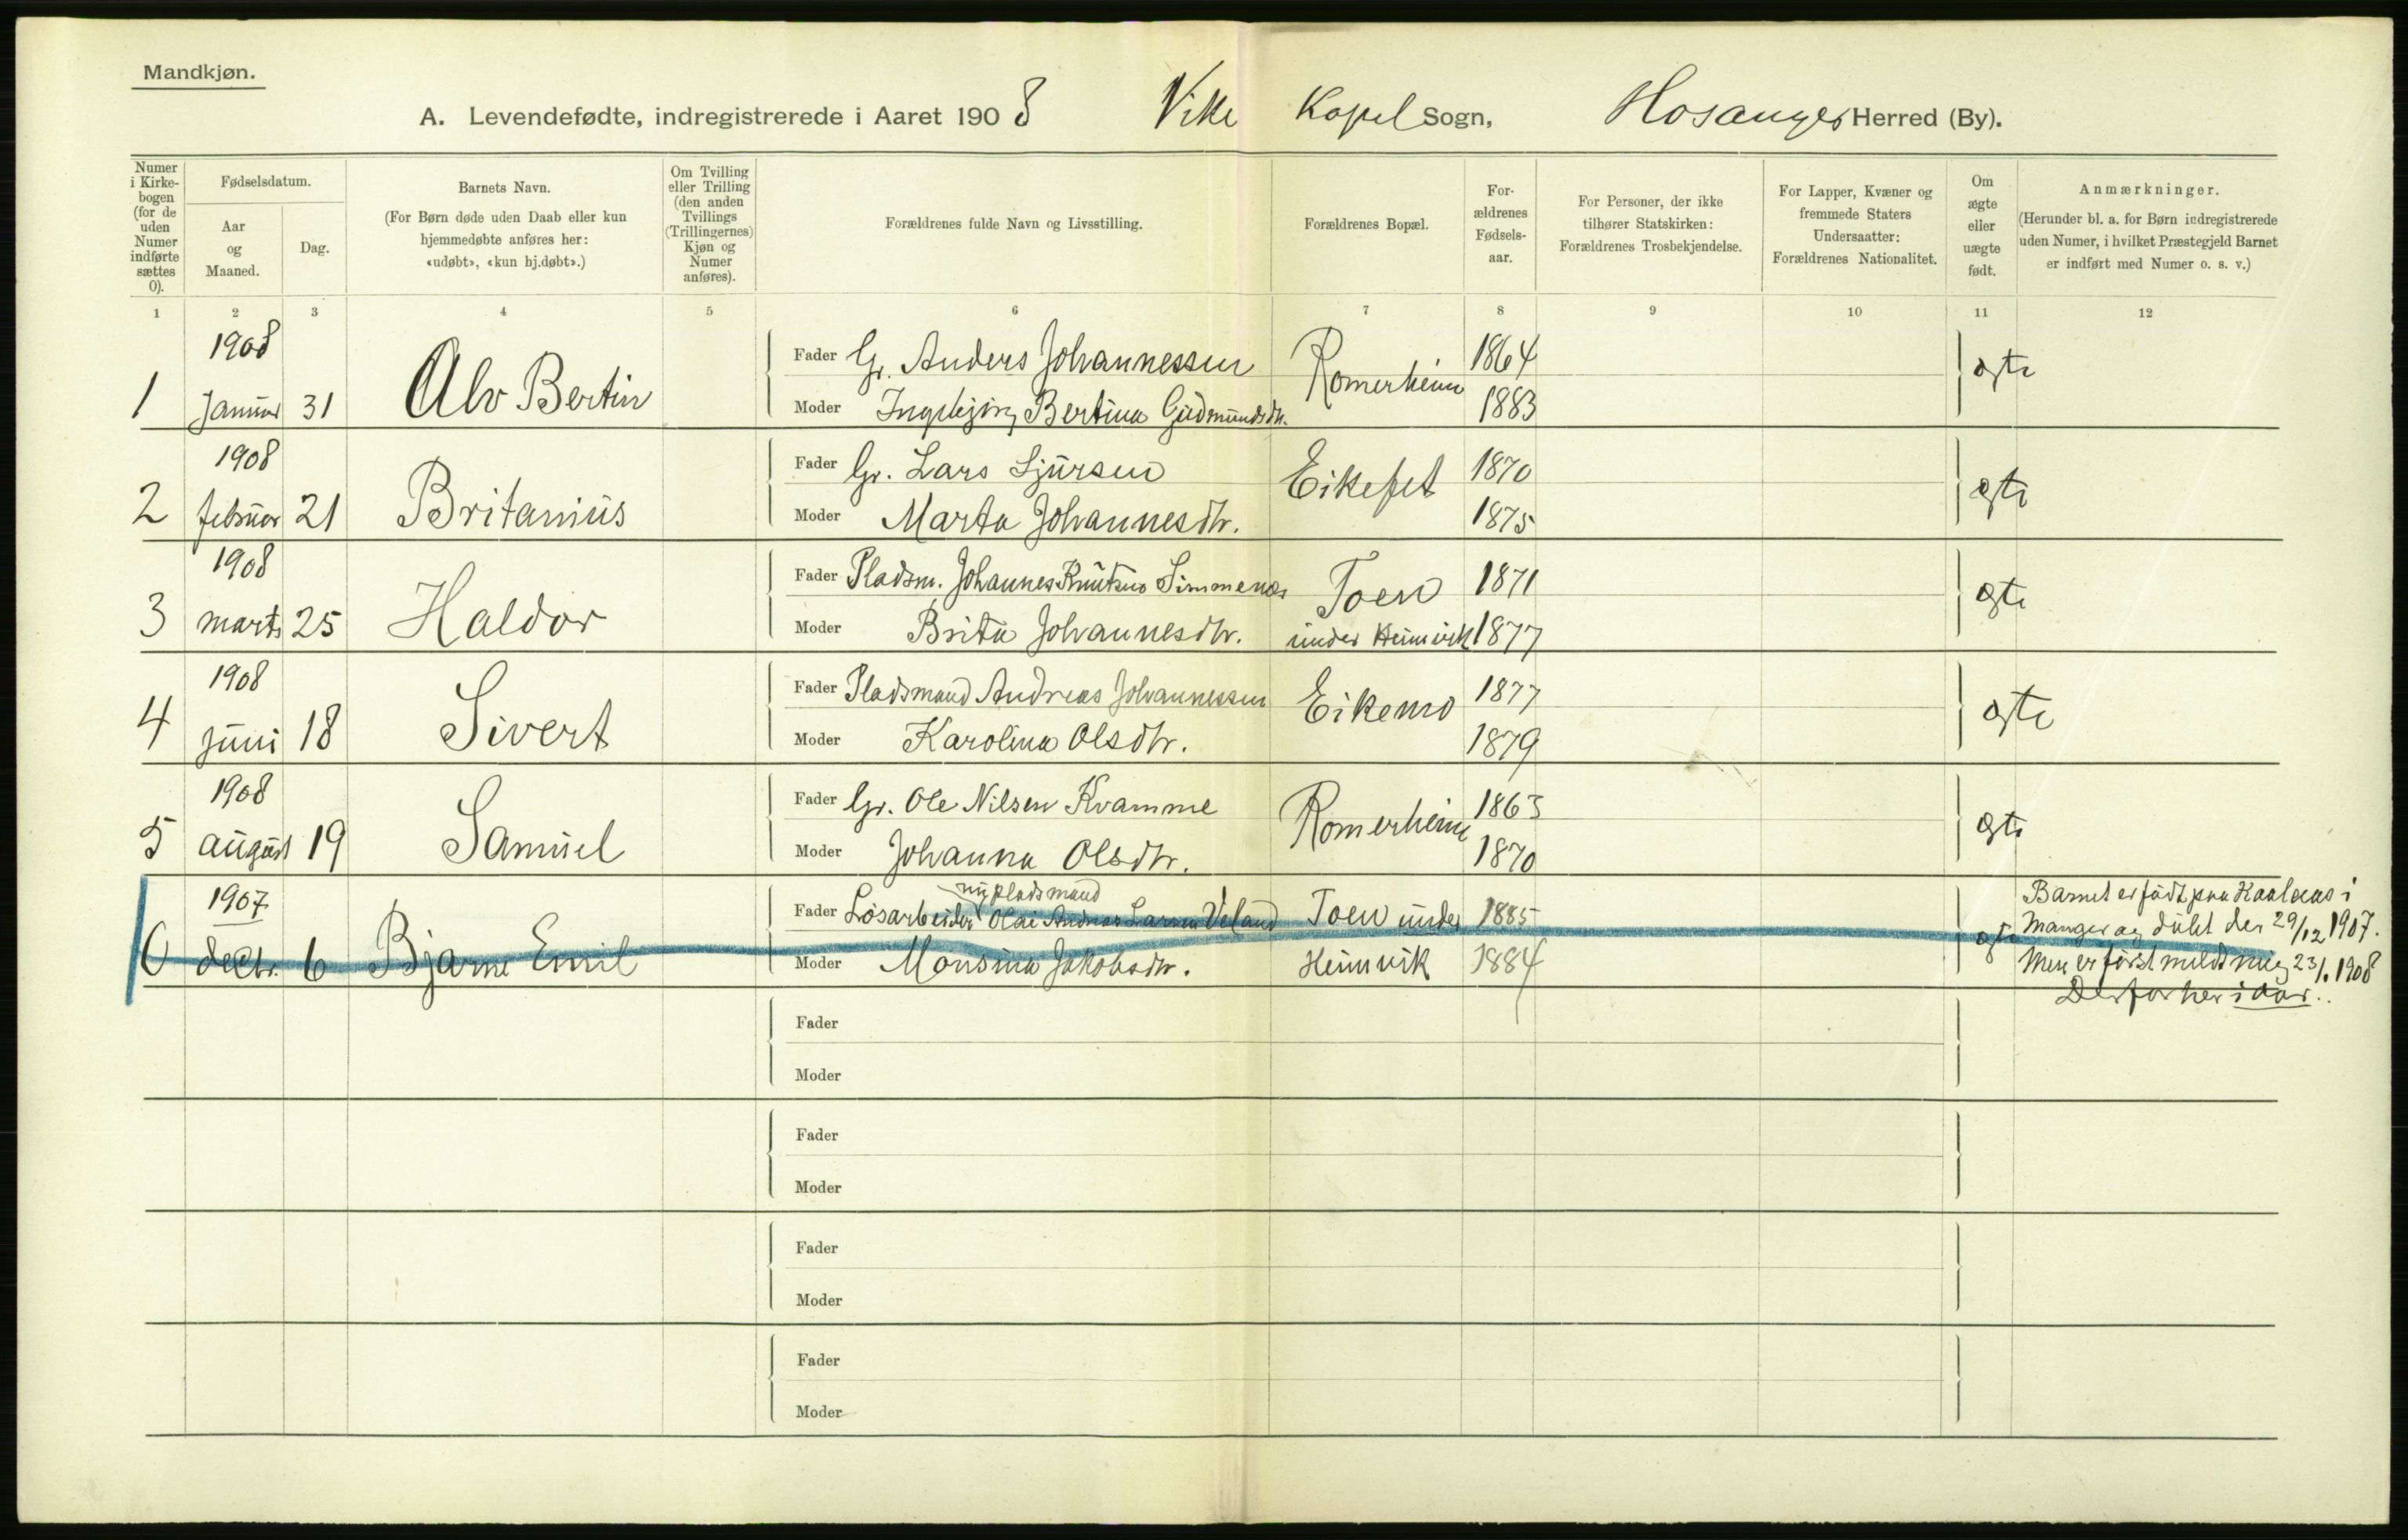 Mandkjøn.
A. Levendefødte, indregistrerede i Aaret 1908 Vike Kapel Sogn, Hosanger Herred (By).
Numer i Kirkebogen (for de uden Numer indførte sættes 0).
Fødselsdatum.
Aar og Maaned.
Dag.
Barnets Navn.
(For Børn døde uden Daab eller kun
hjemmedøbte anføres her:
«udøbt», «kun hj.døbt».)
Om Tvilling
eller Trilling
(den anden
Tvillings
(Trillingernes)
Kjøn og
Numer
anføres).
Forældrenes fulde Navn og Livsstilling.
Forældrenes Bopæl.
For-
ældrenes
Fødsels-
aar.
For Personer, der ikke
tilhører Statskirken:
Forældrenes Trosbekjendelse.
For Lapper, Kvæner og
fremmede Staters
Undersaatter:
Forældrenes Nationalitet.
Om
ægte
eller
uægte
født.
Anmærkninger.
(Herunder bl. a. for Børn indregistrerede
uden Numer, i hvilket Præstegjeld Barnet
er indført med Numer o. s. v.)
1 2 3 4 5 6 7 8 9 10 11 12
1908
1 Januar 31 Alv Bertin
Fader Gr. Anders Johannessen Romerheim 1864 ægte
Moder Ingebjørg Bertina Gudmundsdtr. 1883
1908
2 februar 21 Britanius
Fader Gr. Lars Sjursen Eikefet 1870 ægte
Moder Marta Johannesdtr. 1875
1908
3 marts 25 Haldor
Fader Pladsm. Johannes Knutsen Simmenes Toen 1871 ægte
Moder Brita Johannesdtr. under Heimvik 1877
1908
4 juni 18 Sivert
Fader Pladsmand Andreas Johannessen Eikemo 1877 ægte
Moder Karolina Olsdtr. 1879
1908
5 august 19 Samuel
Fader Gr. Ole Nilsen Kvamme Romerheim 1863 ægte
Moder Johanna Olsdtr. 1870
1907
0 decbr. 6 Bjarne Emil
nu pladsmand
Fader Løsarbeider Olai Andreas Larsen Veland Toen under 1885 ægte
Moder Monsina Jakobsdtr. Heimvik 1884
Barnet er født paa Kaalaas i
Manger og døbt der 29/12 1907.
Men er først meldt mig 23/1 1908
Derfor her i aar.
Fader
Moder
Fader
Moder
Fader
Moder
Fader
Moder